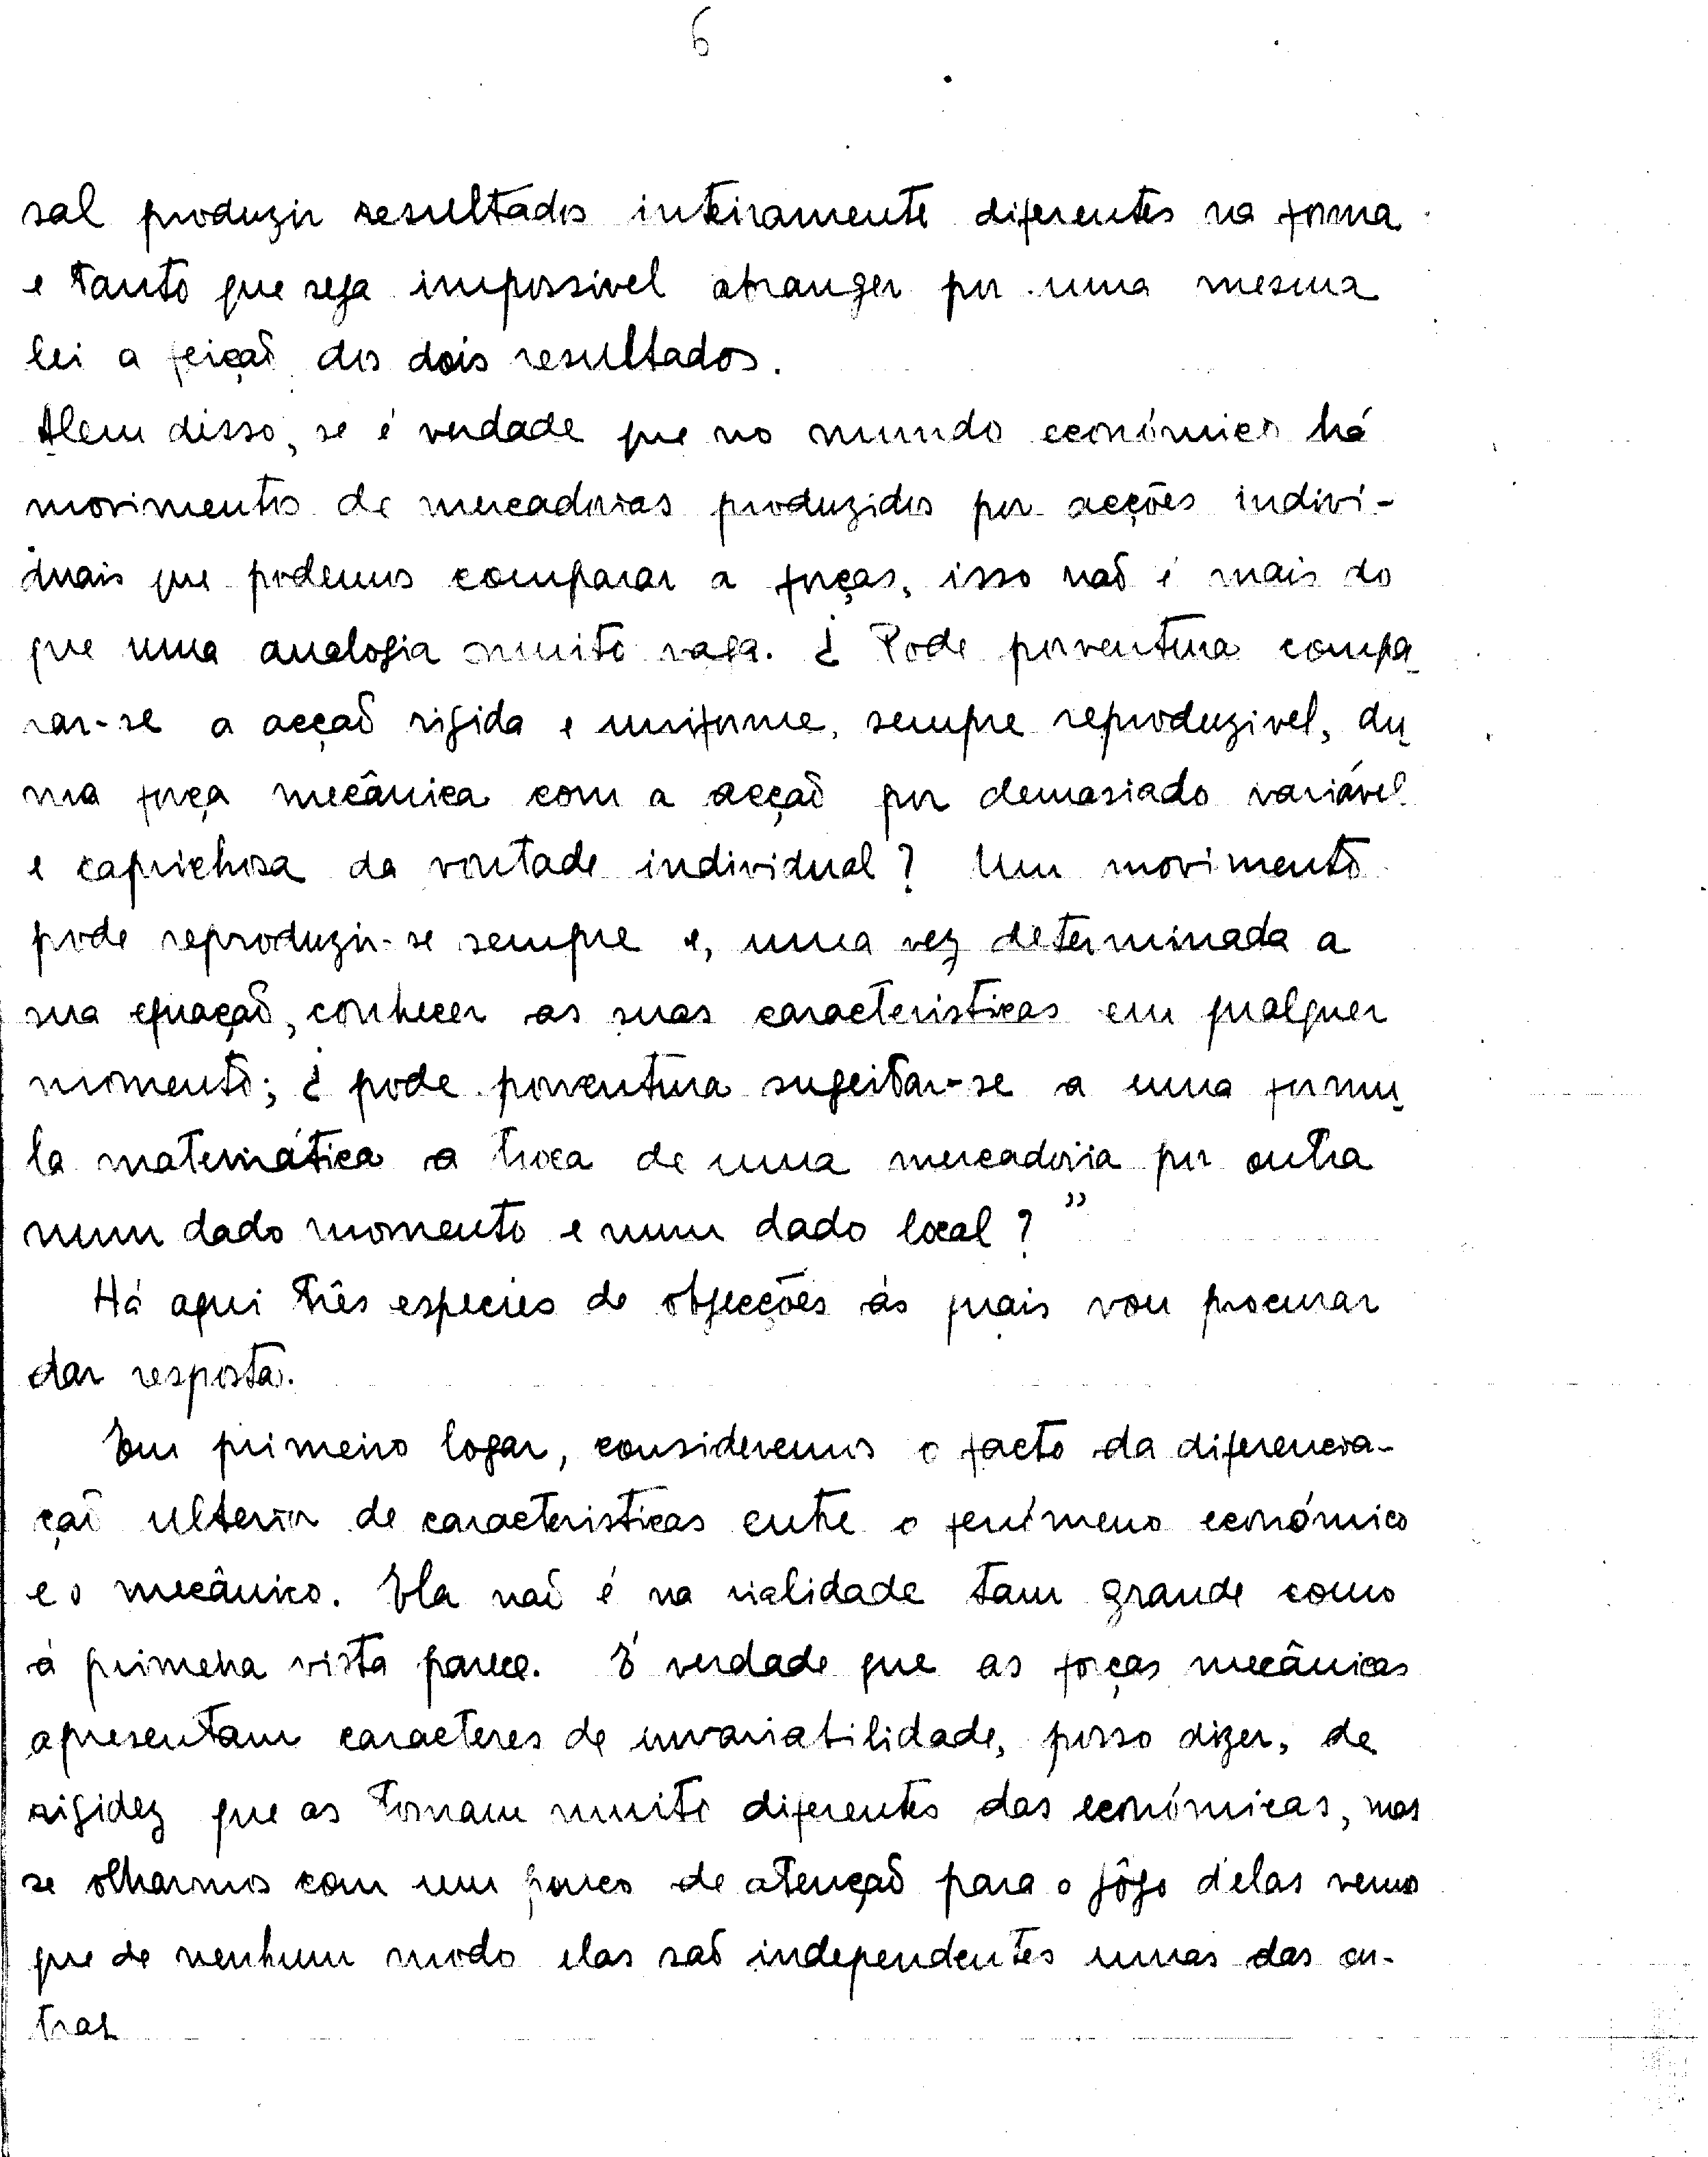 6
sal produzir resultados inteiramente diferentes na forma
e tanto que seja impossivel abranger por uma mesma
lei a feição dos dois resultados.
Alem disso, se é verdade que no mundo económico há
movimentos de mercadorias produzidos por acções indivi-
duais que podemos comparar a forças, isso não é mais do
que uma analogia muito vaga. ¿ Pode porventura compa-
rar-se a acção rigida e uniforme, sempre reproduzivel, du-
ma força mecânica com a acção por demasiado variável
e caprichosa da vontade individual? Um movimento
pode reproduzir-se sempre e, uma vez determinada a
sua equação, conhecer as suas caracteristicas em qualquer
momento; ¿ pode porventura sugeitar-se a uma formu-
la matemática a troca de uma mercadoria por outra
num dado momento e num dado local? ”
Há aqui três especies de objecções ás quais vou procurar
dar resposta.
Em primeiro logar, consideremos o facto da diferencia-
ção ulterior de caracteristicas entre o fenómeno económico
e o mecânico. Ela não é na rialidade tam grande como
á primeira vista parece. É verdade que as forças mecânicas
apresentam caracteres de invariabilidade, posso dizer, de
rigidez que as tornam muito diferentes das económicas, mas
se olharmos com um pouco de atenção para o jôgo delas vemos
que de nenhum modo elas são independentes umas das ou-
tras